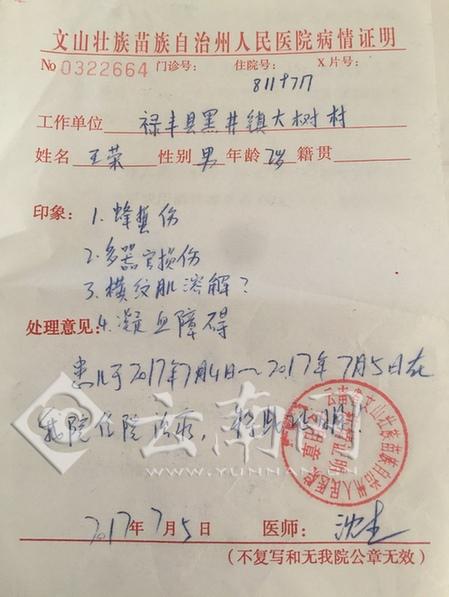 文山壮族苗族自治州人民医院病情证明
No 0322664 门诊号: 住院号: X片号:
工作单位 禄丰县黑井镇大树村
姓名 王荣 性别 男 年龄 籍贯
印象: 1.蜂蜇伤
2.多器官损伤
3.横纹肌溶解?
处理意见: 4.凝血障碍
患儿于2017年7月4日~2017年7月5日在
我院住院治疗,特此证明!
云南省文山壮族苗族自治州人民医院
云南网
WWW.YUNNAN.CN
2017年7月5日 医师:
(不复写和无我院公章无效)